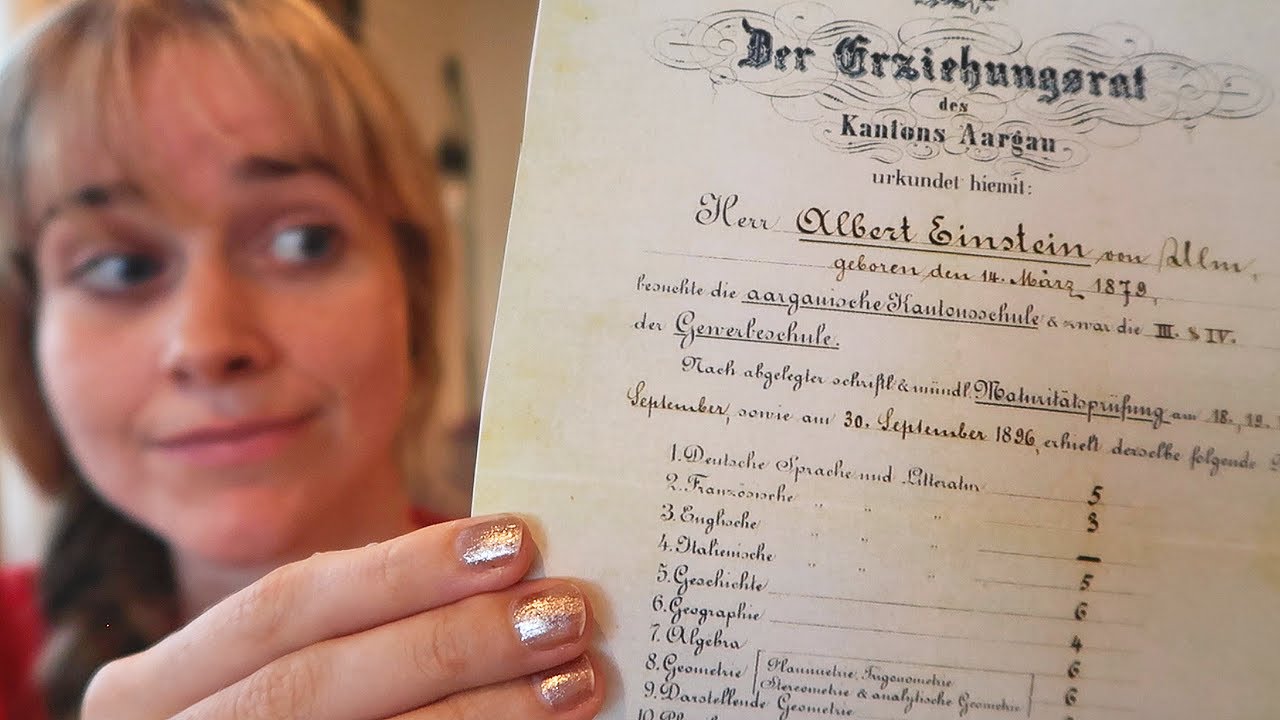 Der Erziehungsrat
des
Kantons Aargau
urkundet hiemit:
Herr Albert Einstein von Ulm,
geboren den 14. März 1879,
besuchte die aargauische Kantonsschule & zwar die III. & IV.
der Gewerbeschule.
Nach abgelegter schriftl. & mündl. Maturitätsprüfung am 18., 19.
September, sowie am 30. September 1896, erhielt derselbe folgende
1. Deutsche Sprache und Litteratur 5
2. Französische " " " 3
3. Englische " " " —
4. Italienische " " " 5
5. Geschichte 6
6. Geographie 4
7. Algebra 6
8. Geometrie [Planimetrie, Trigonometrie 6
Stereometrie & analytische Geometrie]
9. Darstellende Geometrie
10.